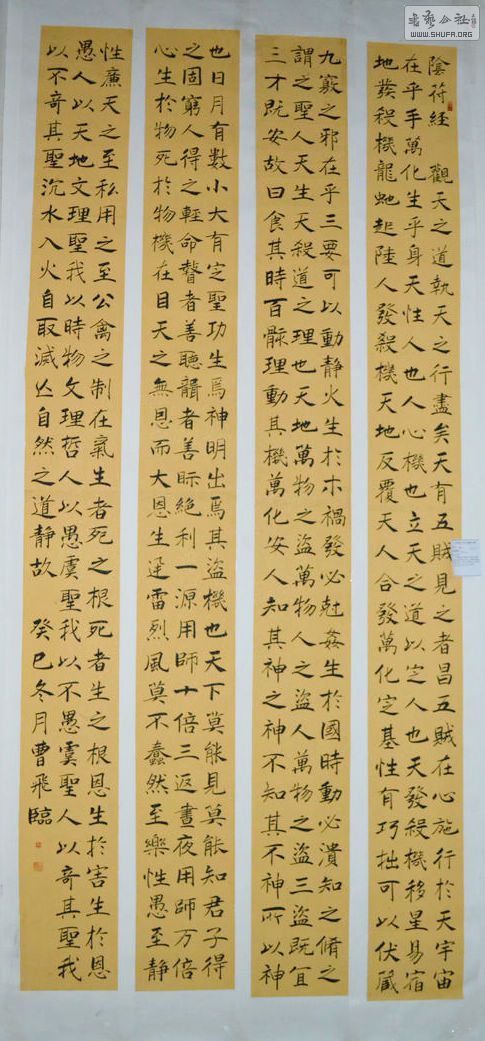 書藝公社
WWW.SHUFA.ORG
陰符經 觀天之道執天之行盡矣天有五賊見之者昌五賊在心施行於天宇宙
在乎手萬化生乎身天性人也人心機也立天之道以定人也天發殺機移星易宿
地發殺機龍虵起陸人發殺機天地反覆天人合發萬化定基性有巧拙可以伏藏
九竅之邪在乎三要可以動靜火生於木禍發必尅姦生於國時動必潰知之脩之
謂之聖人天生天殺道之理也天地萬物之盜萬物人之盜人萬物之盜三盜既宜
三才既安故曰食其時百骸理動其機萬化安人知其神之神不知其不神所以神
也日月有數小大有定聖功生焉神明出焉其盜機也天下莫能見莫能知君子得
之固窮人得之輕命瞽者善聽聾者善眎絕利一源用師十倍三返晝夜用師万倍
心生於物死於物機在目天之無恩而大恩生迅雷烈風莫不蠢然至樂性愚至靜
性廉天之至私用之至公禽之制在氣生者死之根死者生之根恩生於害生於恩
愚人以天地文理聖我以時物文理哲人以愚虞聖我以不愚虞聖人以奇其聖我
以不奇其聖沉水入火自取滅亡自然之道靜故 癸巳冬月曹飛臨